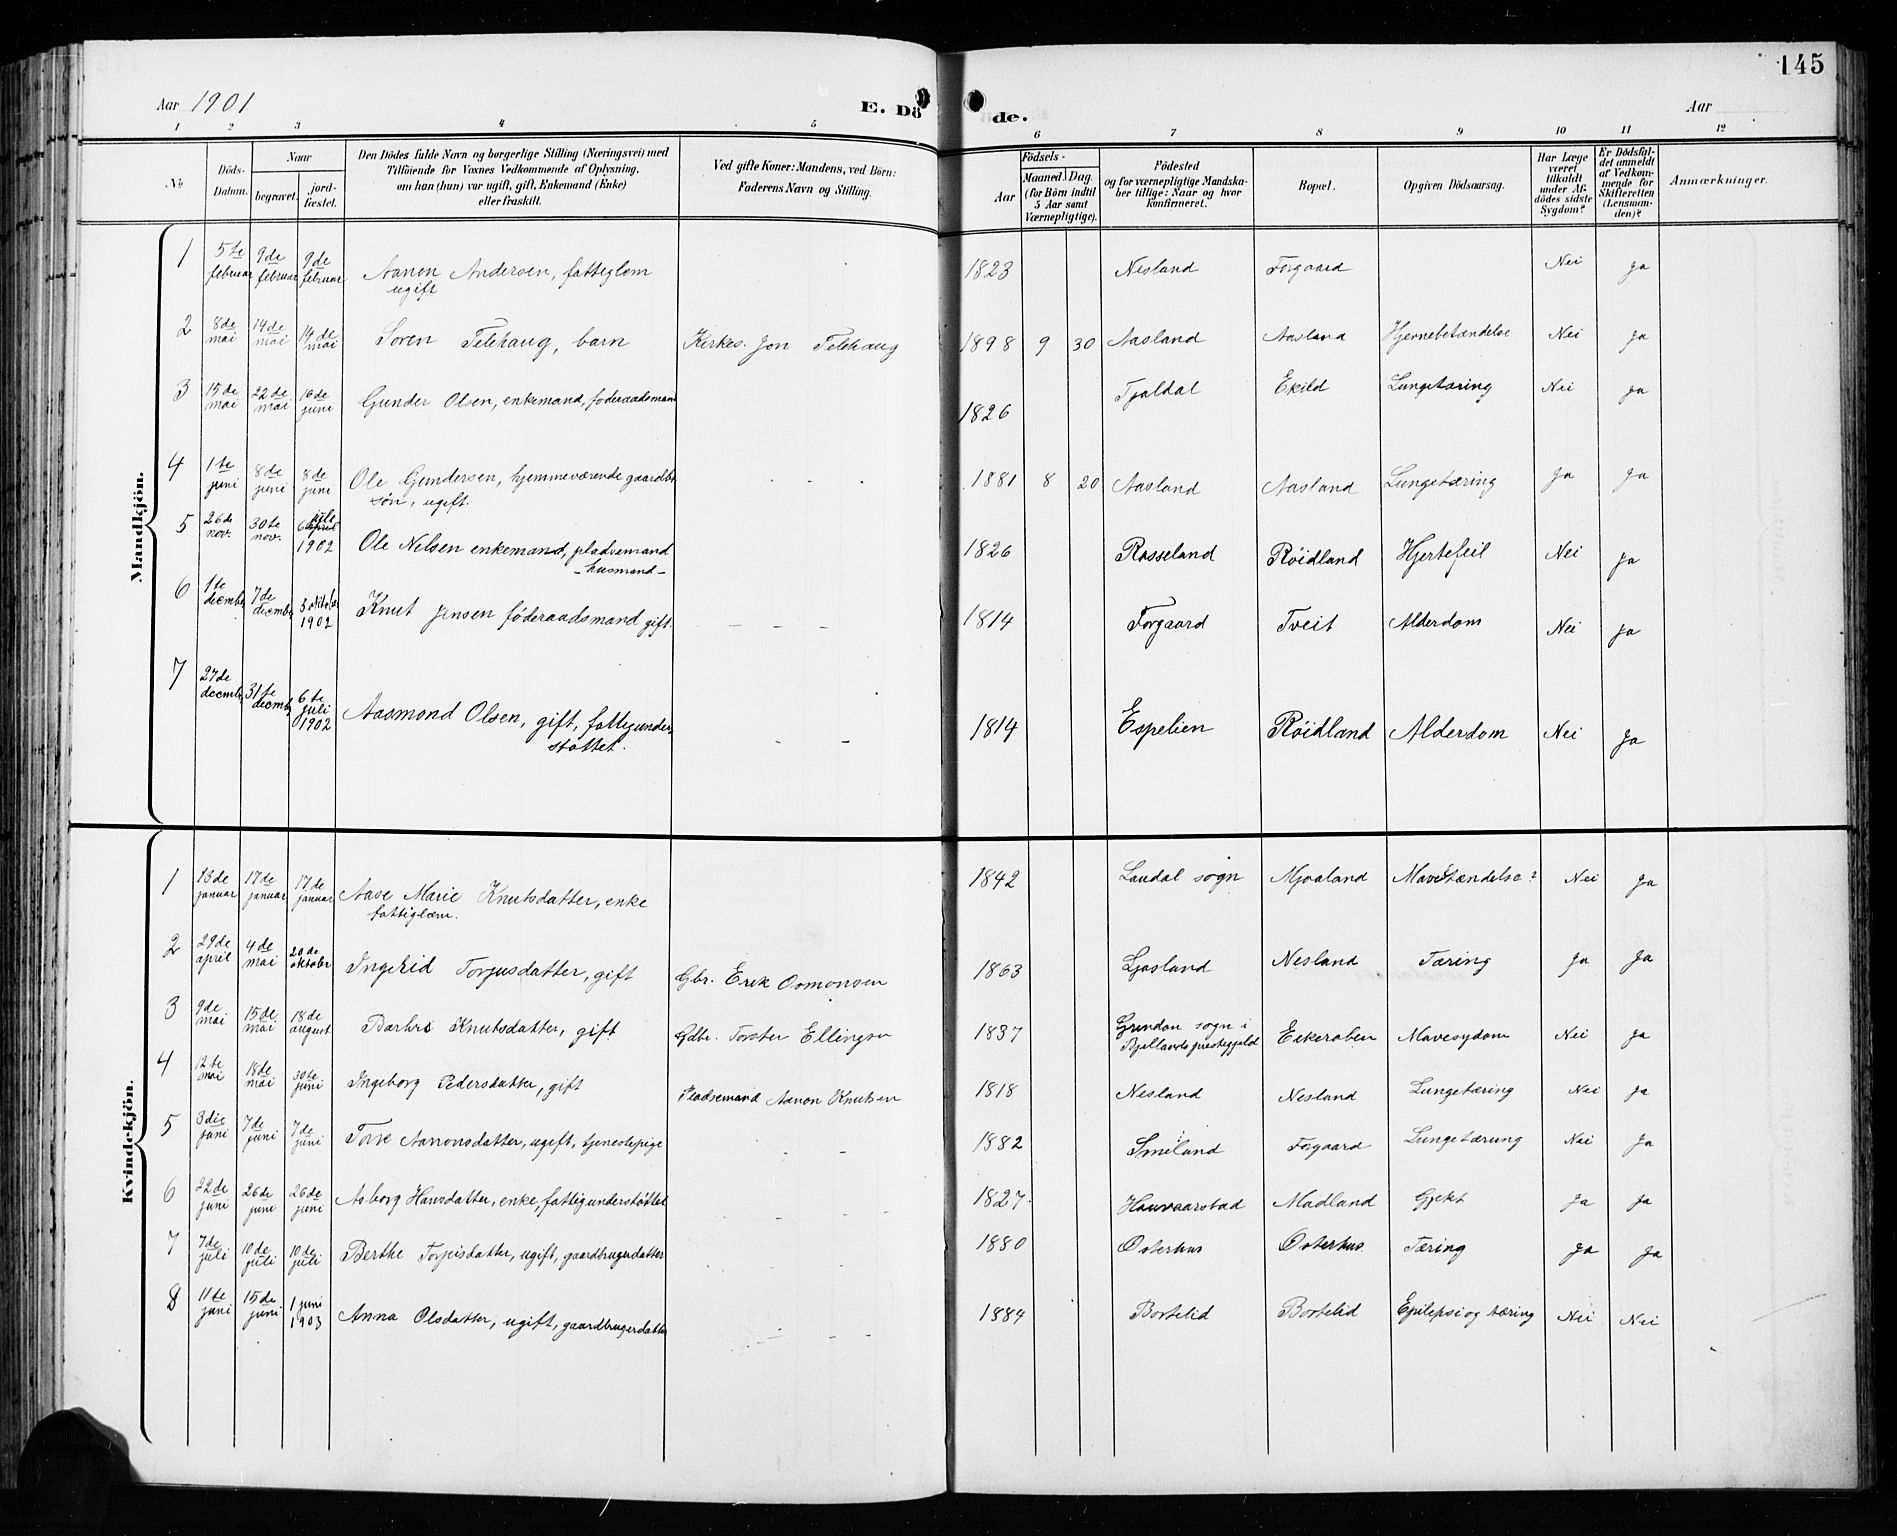 145
Aar 1901
E. Dö
de.
Aar
1 2 3 4 5 6 7 8 9 10 11 12
No
Döds-
Datum.
Naar
begravet.
jord-
fæstet.
Den Dödes fulde Navn og borgerlige Stilling (Næringsvei) med
Tilföiende for Voxnes Vedkommende af Oplysning,
om han (hun) var ugift, gift, Enkemand (Enke)
eller fraskilt.
Ved gifte Koner: Mandens, ved Börn:
Faderens Navn og Stilling.
Födsels-
Aar
Maaned. Dag.
(for Börn indtil
5 Aar samt
Værnepligtige).
Födested
og for værnepligtige Mandska-
ber tillige: Naar og hvor
konfirmeret.
Bopæl.
Opgiven Dödsaarsag.
Har Læge
været
tilkaldt
under Af-
dödes sidste
Sygdom?
Er Dödsfal-
det anmeldt
af Vedkom-
mende for
Skifteretten
(Lensman-
den)?
Anmærkninger.
Mandkjön.
1 5te februar 9de februar 9de februar Aanon Andersen, fattiglem ugift 1823 Nesland Forgaard Nei Ja
2 8de mai 14de mai 14de mai Soren Telehaug, barn Kirkes. Jon Telehaug 1898 9 30 Aasland Aasland Hjernebetændelse Nei Ja
3 15de mai 22de mai 16de juni Gunder Olsen, enkemand, foderaadsmand 1826 Tjaldal Ekild Lungetæring Nei Ja
4 1te juni 8de juni 8de juni Ole Gundersen, hjemmeværende gaardbr søn, ugift. 1881 8 20 Aasland Aasland Lungetæring Ja Ja
5 26de nov. 30te nov. 6 april juli 1902 Ole Nelsen enkemand, pladsemand -husmand- 1826 Rosseland Röidland Hjertefeil Nei Ja
6 1te decembr 7de decembr 5 oktober 1902 Knut Jensen föderaadsmand gift. - - - 1814 Forgaard Tveit Alderdom Nei Ja
7 27de decembr 31te decemb 6te juli 1902 Aasmond Olsen, gift, fattigunder- stöttet. - - 1814 Espelien Röidland Alderdom Nei Ja
Kvindekjön.
1 13de januar 17de januar 17de januar Aase Marie Knutsdatter, enke fattiglæm. 1842 Laudal sogn Mjvaland Mavebetændelse? Nei Ja
2 29de april 4de mai 20de oktober Ingerid Torjusdatter, gift Gbr. Erik Osmonsen 1863 Ljosland Nesland Tæring Ja Ja
3 9de mai 15de mai 18de august Barbro Knutsdatter, gift Gdbr. Torster Ellingsen 1837 Grindum sogn i Bjellands prestegjeld Eikeraben Mavesydom Nei Ja
4 12te mai 18de mai 30te juni Ingeborg Pedersdatter, gift Pladsemand Aanon Knutsen 1818 Nesland Nesland Lungetæring Nei Ja
5 3die juni 7de juni 7de juni Tone Aanonsdatter, ugift, tjenestepige - - 1882 Smeland Forgaard Lungetæring Nei Ja
6 22de juni 26de juni 26de juni Asborg Hansdatter, enke, fattigunderstöttet - - - 1827 Hauvaarstad Madland Gjekt Ja Ja
7 7de juli 10de juli 10de juli Berthe Torjusdatter, ugift, gaardbrugerdatter - - 1880 Osterhus Osterhus Tæring Ja Ja
8 11te juni 15de juni 1 juni 1903 Anna Olsdatter, ugift, gaardbrugerdatter - - 1884 Bortelid Bortelid Epilepsi og tæring Nei Nei